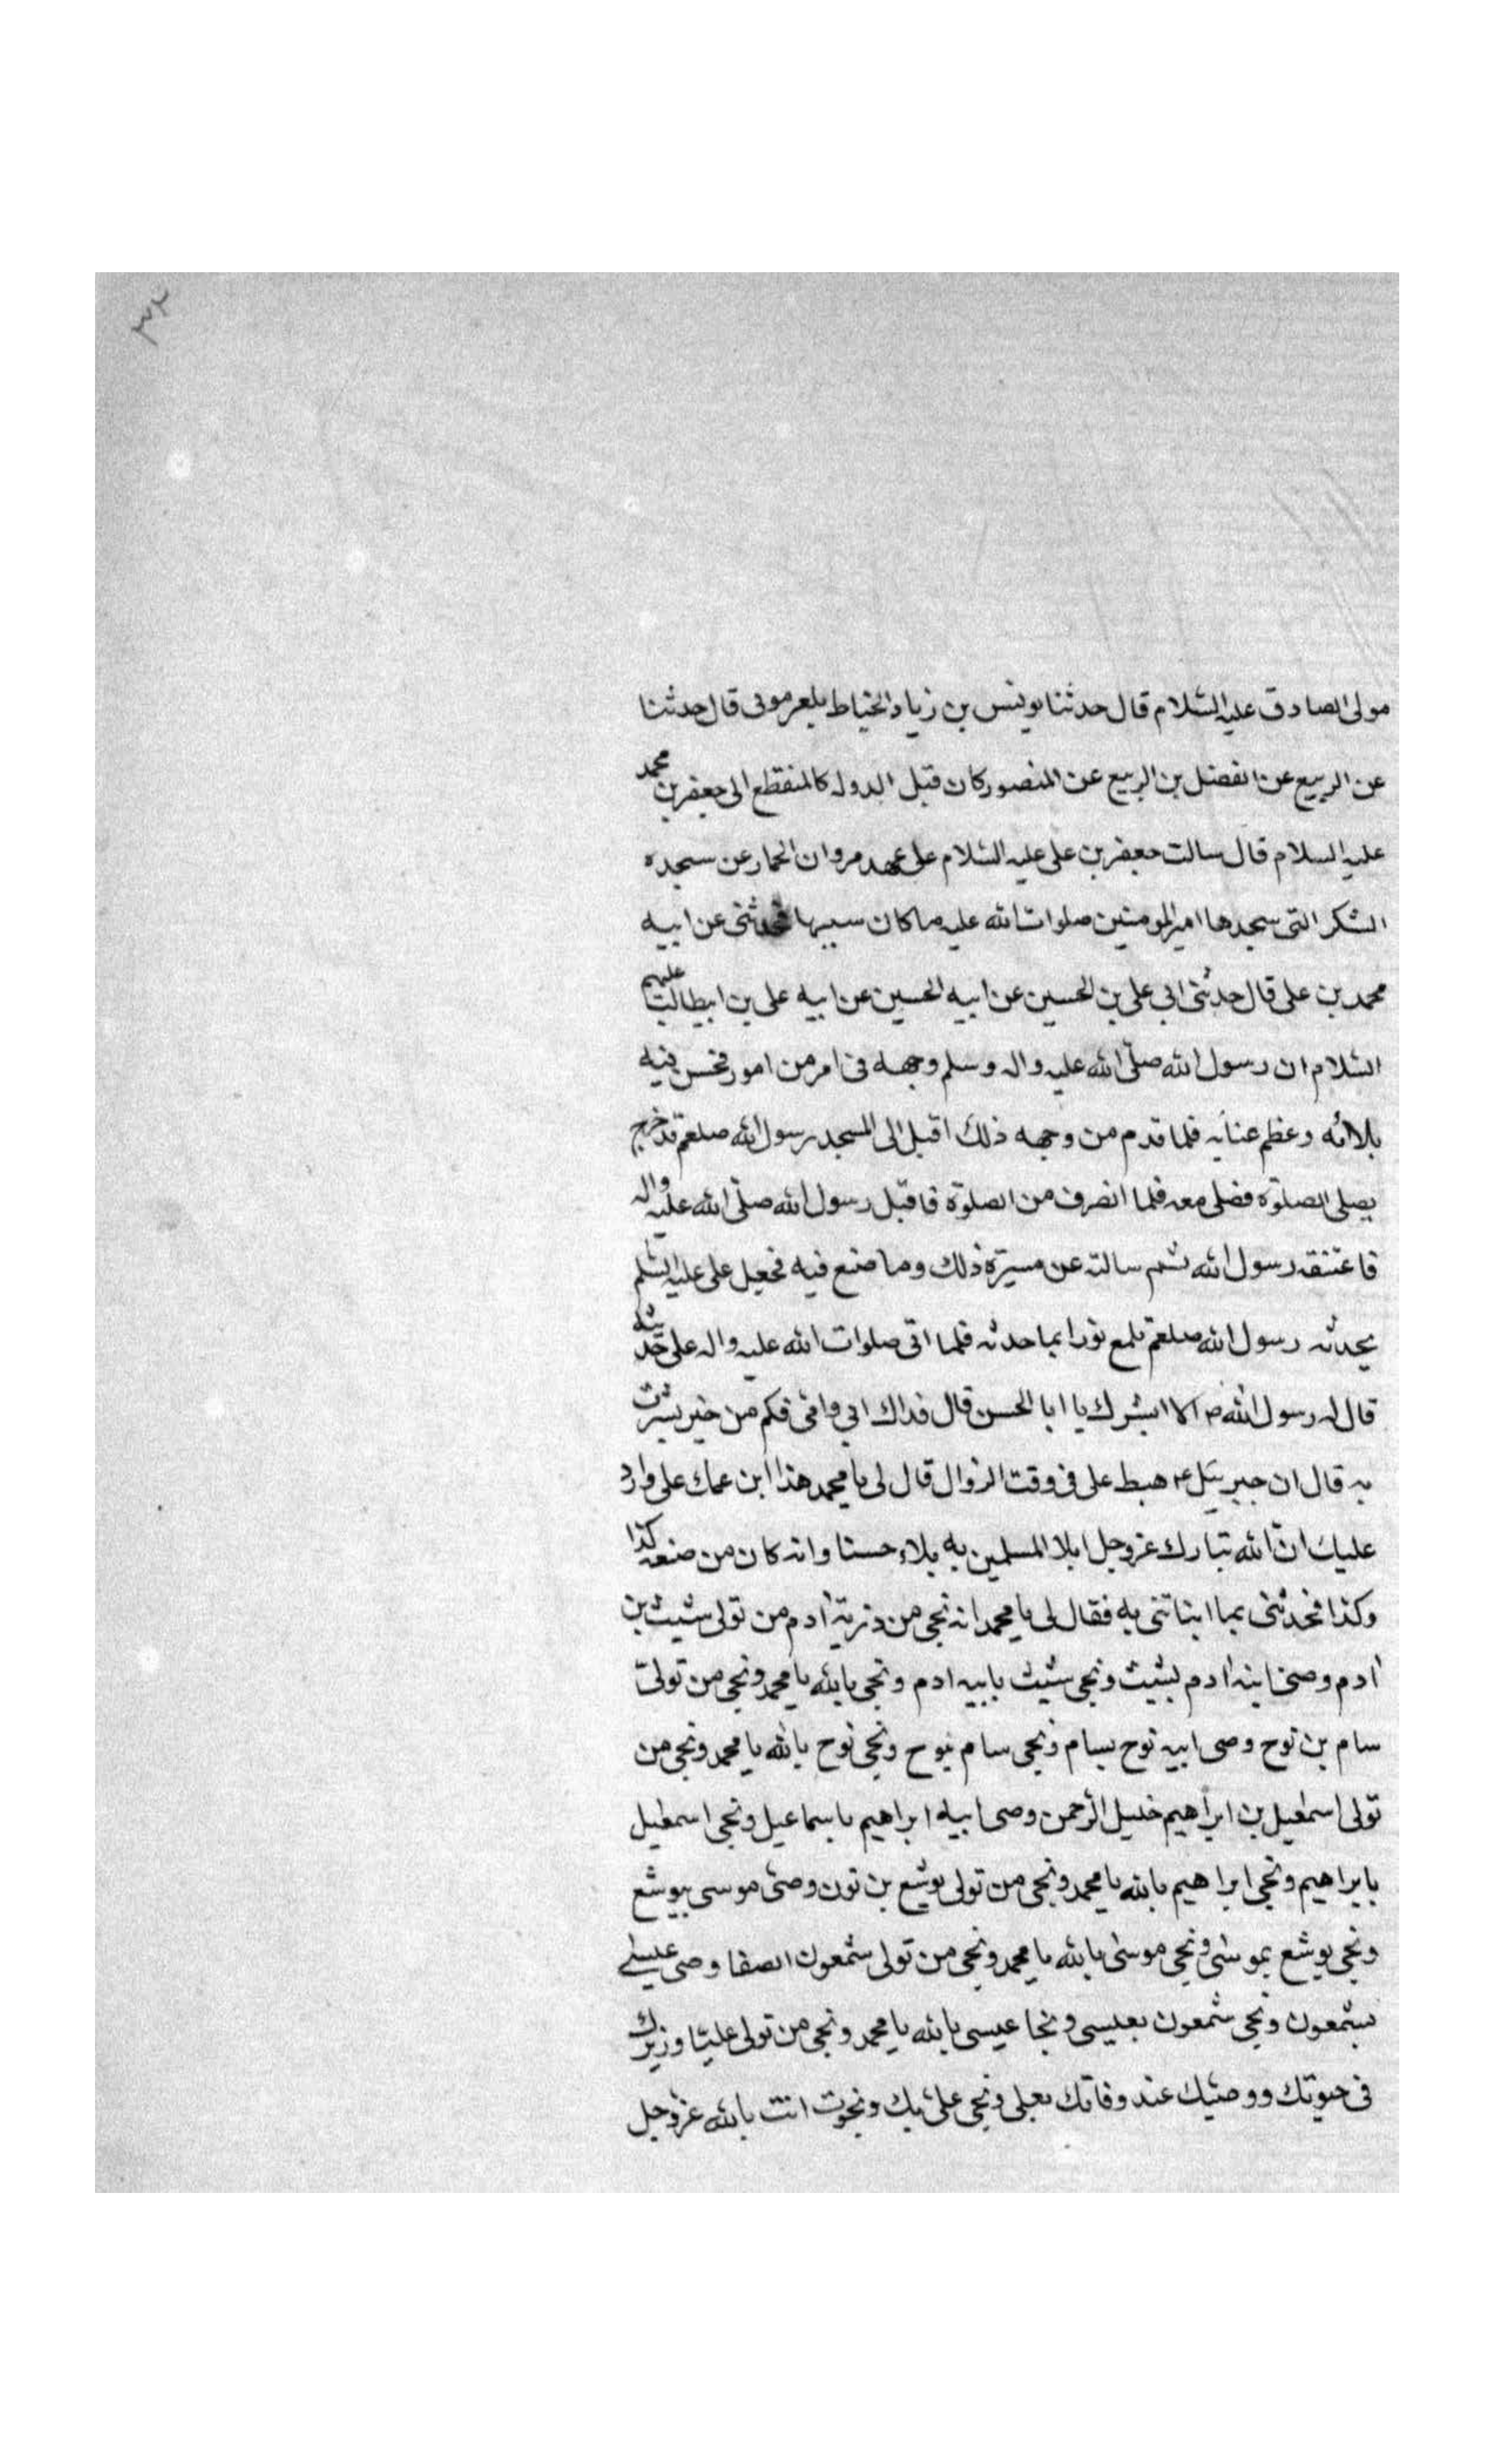 ٣٢
مولى الصادق عليه السّلام قال حدثنا يونس بن زياد الخياط بلعرمونى قال حدثنا
عن الربيع عن الفضل بن الربيع عن المنصور كان قبل الدوله كالمنقطع الى جعفر بن محمد
عليه السلام قال سالت جعفر بن على عليه السّلام على عهد مروان الحمار عن سجده
الشكر التى سجدها امير المومنين صلوات الله عليه ما كان سببها فحدثنى عن ابيه
محمد بن على قال حدثنى ابى على بن الحسين عن ابيه الحسين عن ابيه على بن ابيطالب عليهم
السّلام ان رسول الله صلّى الله عليه واله وسلم وجهه فى امر من امور فحسن فيه
بلاؤه وعظم عنايه فلما قدم من وجهه ذلك اقبل الى المسجد رسول الله صلعم قد خرج
يصلى الصلوة فصلى معه فلما انصرف من الصلوة فاقبل رسول الله صلّى الله عليه واله
فاعتنقه رسول الله ثم سالته عن مسيرة ذلك وما صنع فيه فجعل على عليه السّلم
يحدثه رسول الله صلعم تلمع نورا بما حدثه فلما اتى صلوات الله عليه واله على حديثه
قال له رسول الله ص الا ابشرك يا ابا الحسن قال فداك ابى وامى فكم من خير بشرت
به قال ان جبرئيل ع هبط على فى وقت الزوال قال لى يا محمد هذا ابن عمك على وارد
عليك انّ الله تبارك عزوجل ابلا المسلمين به بلاء حسنا وانه كان من صنعه كذا
وكذا فحدثنى بما انباتنى به فقال لى يا محمد انه نجى من ذرية آدم من تولى شيث بن
آدم وصى ابنه آدم بشيث ونجى شيث بابيه ادم ونجى بالله يا محمد ونجى من تولىّ
سام بن نوح وصى ابيه نوح بسام ونجى سام بنوح ونجى نوح بالله يا محمد ونجى من
تولى اسمعيل بن ابراهيم خليل الرّحمن وصى ابيه ابراهيم باسماعيل ونجى اسمعيل
بابراهيم ونجى ابراهيم بالله يا محمد ونجى من تولى يوشع بن نون وصىّ موسى بيوشع
ونجى يوشع بموسى ونجى موسى بالله يا محمد ونجى من تولى شمعون الصفا وصى عيسى
بشمعون ونجى شمعون بعيسى ونجا عيسى بالله يا محمد ونجى من تولى عليّا وزيرك
فى حيوتك ووصيّك عند وفاتك بعلى ونجى علىّ بك ونجوت انت بالله عزوجل